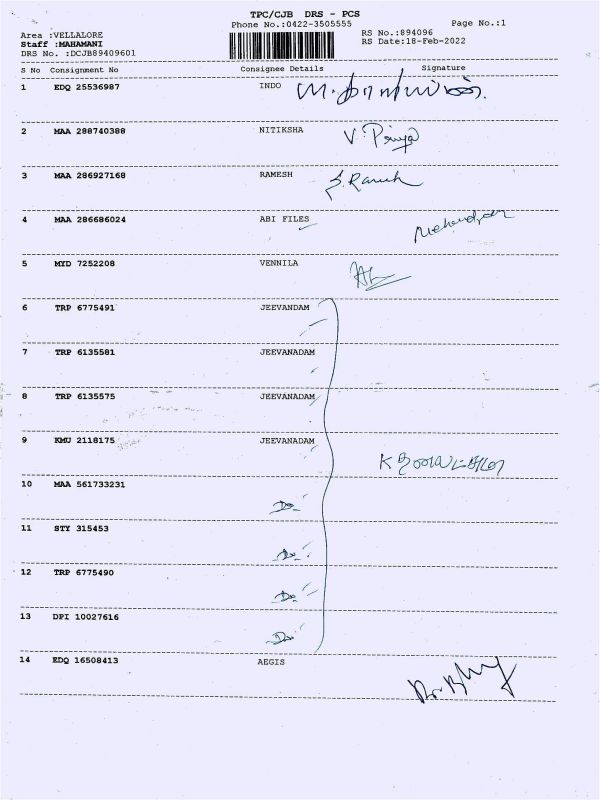 TPC/CJB DRS - PCS
Phone No.:0422-3505555
Page No.:1
Area :VELLALORE
RS No.:894096
Staff :MAHAMANI
RS Date:18-Feb-2022
DRS No. :DCJB89409601
S No Consignment No Consignee Details Signature
1 EDQ 25536987 INDO
2 MAA 288740388 NITIKSHA V. Priya
3 MAA 286927168 RAMESH S. Ramesh
4 MAA 286686024 ABI FILES Mahendran
5 MYD 7252208 VENNILA
6 TRP 6775491 JEEVANDAM
7 TRP 6135581 JEEVANADAM
8 TRP 6135575 JEEVANADAM
9 KMU 2118175 JEEVANADAM
10 MAA 561733231 Do
11 STY 315453 Do
12 TRP 6775490 Do
13 DPI 10027616 Do
14 EDQ 16508413 AEGIS